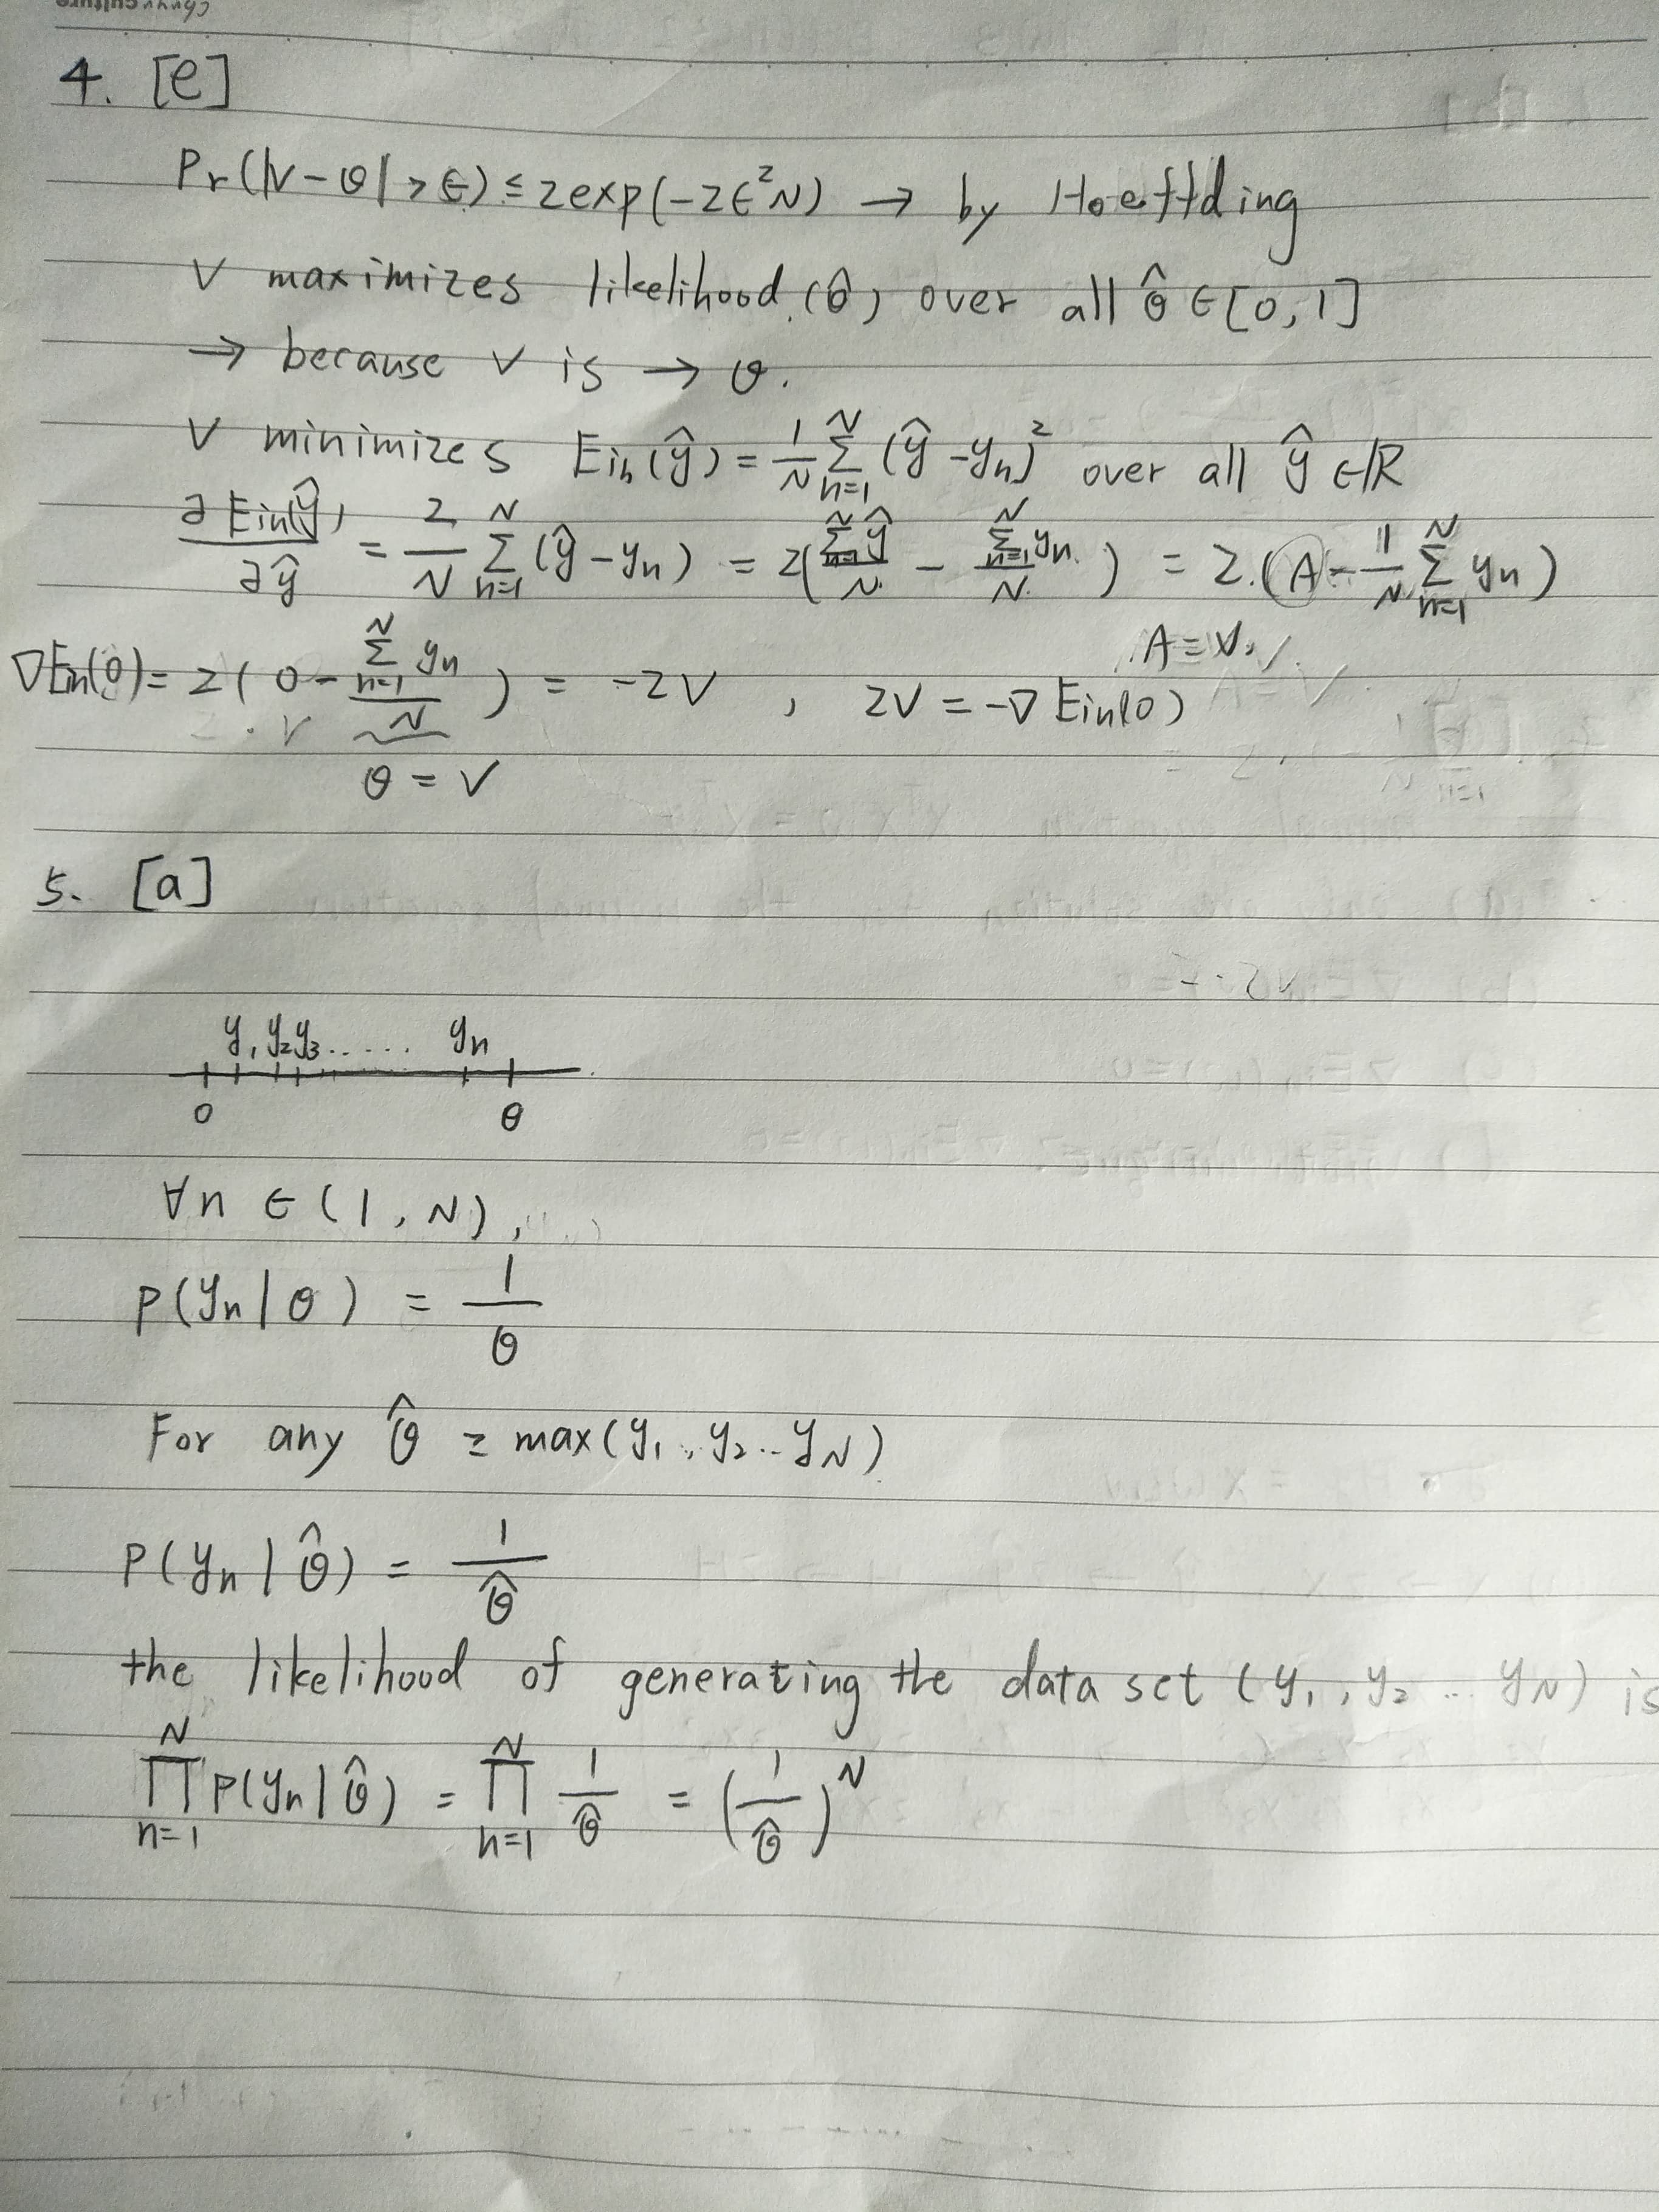 4. [e]
Pr(|ν - θ| > ϵ) ≤ 2exp(-2ϵ²N) → by Hoeffding
ν maximizes likelihood(θ̂) over all θ̂ ∈ [0, 1]
→ because ν is → θ.
ν minimizes Ein(ŷ) = 1/N Σ_{n=1}^{N} (ŷ - yn)² over all ŷ ∈ ℝ
∂Ein(ŷ)/∂ŷ = 2/N Σ_{n=1}^{N} (ŷ - yn) = 2(Σ_{n=1}^{N} ŷ/N - Σ_{n=1}^{N} yn/N) = 2.(A - 1/N Σ_{n=1}^{N} yn)
A = ν.
∇Ein(0) = 2(0 - Σ_{n=1}^{N} yn/N) = -2ν , 2ν = -∇Ein(0)
θ = ν
5. [a]
y1 y2 y3 ...... yn
0 θ
∀n ∈ (1, N),
P(yn | θ) = 1/θ
For any θ̂ ≥ max(y1, y2 .. yN)
P(yn | θ̂) = 1/θ̂
the likelihood of generating the data set (y1, y2 ... yN) is
∏_{n=1}^{N} P(yn | θ̂) = ∏_{n=1}^{N} 1/θ̂ = (1/θ̂)^N